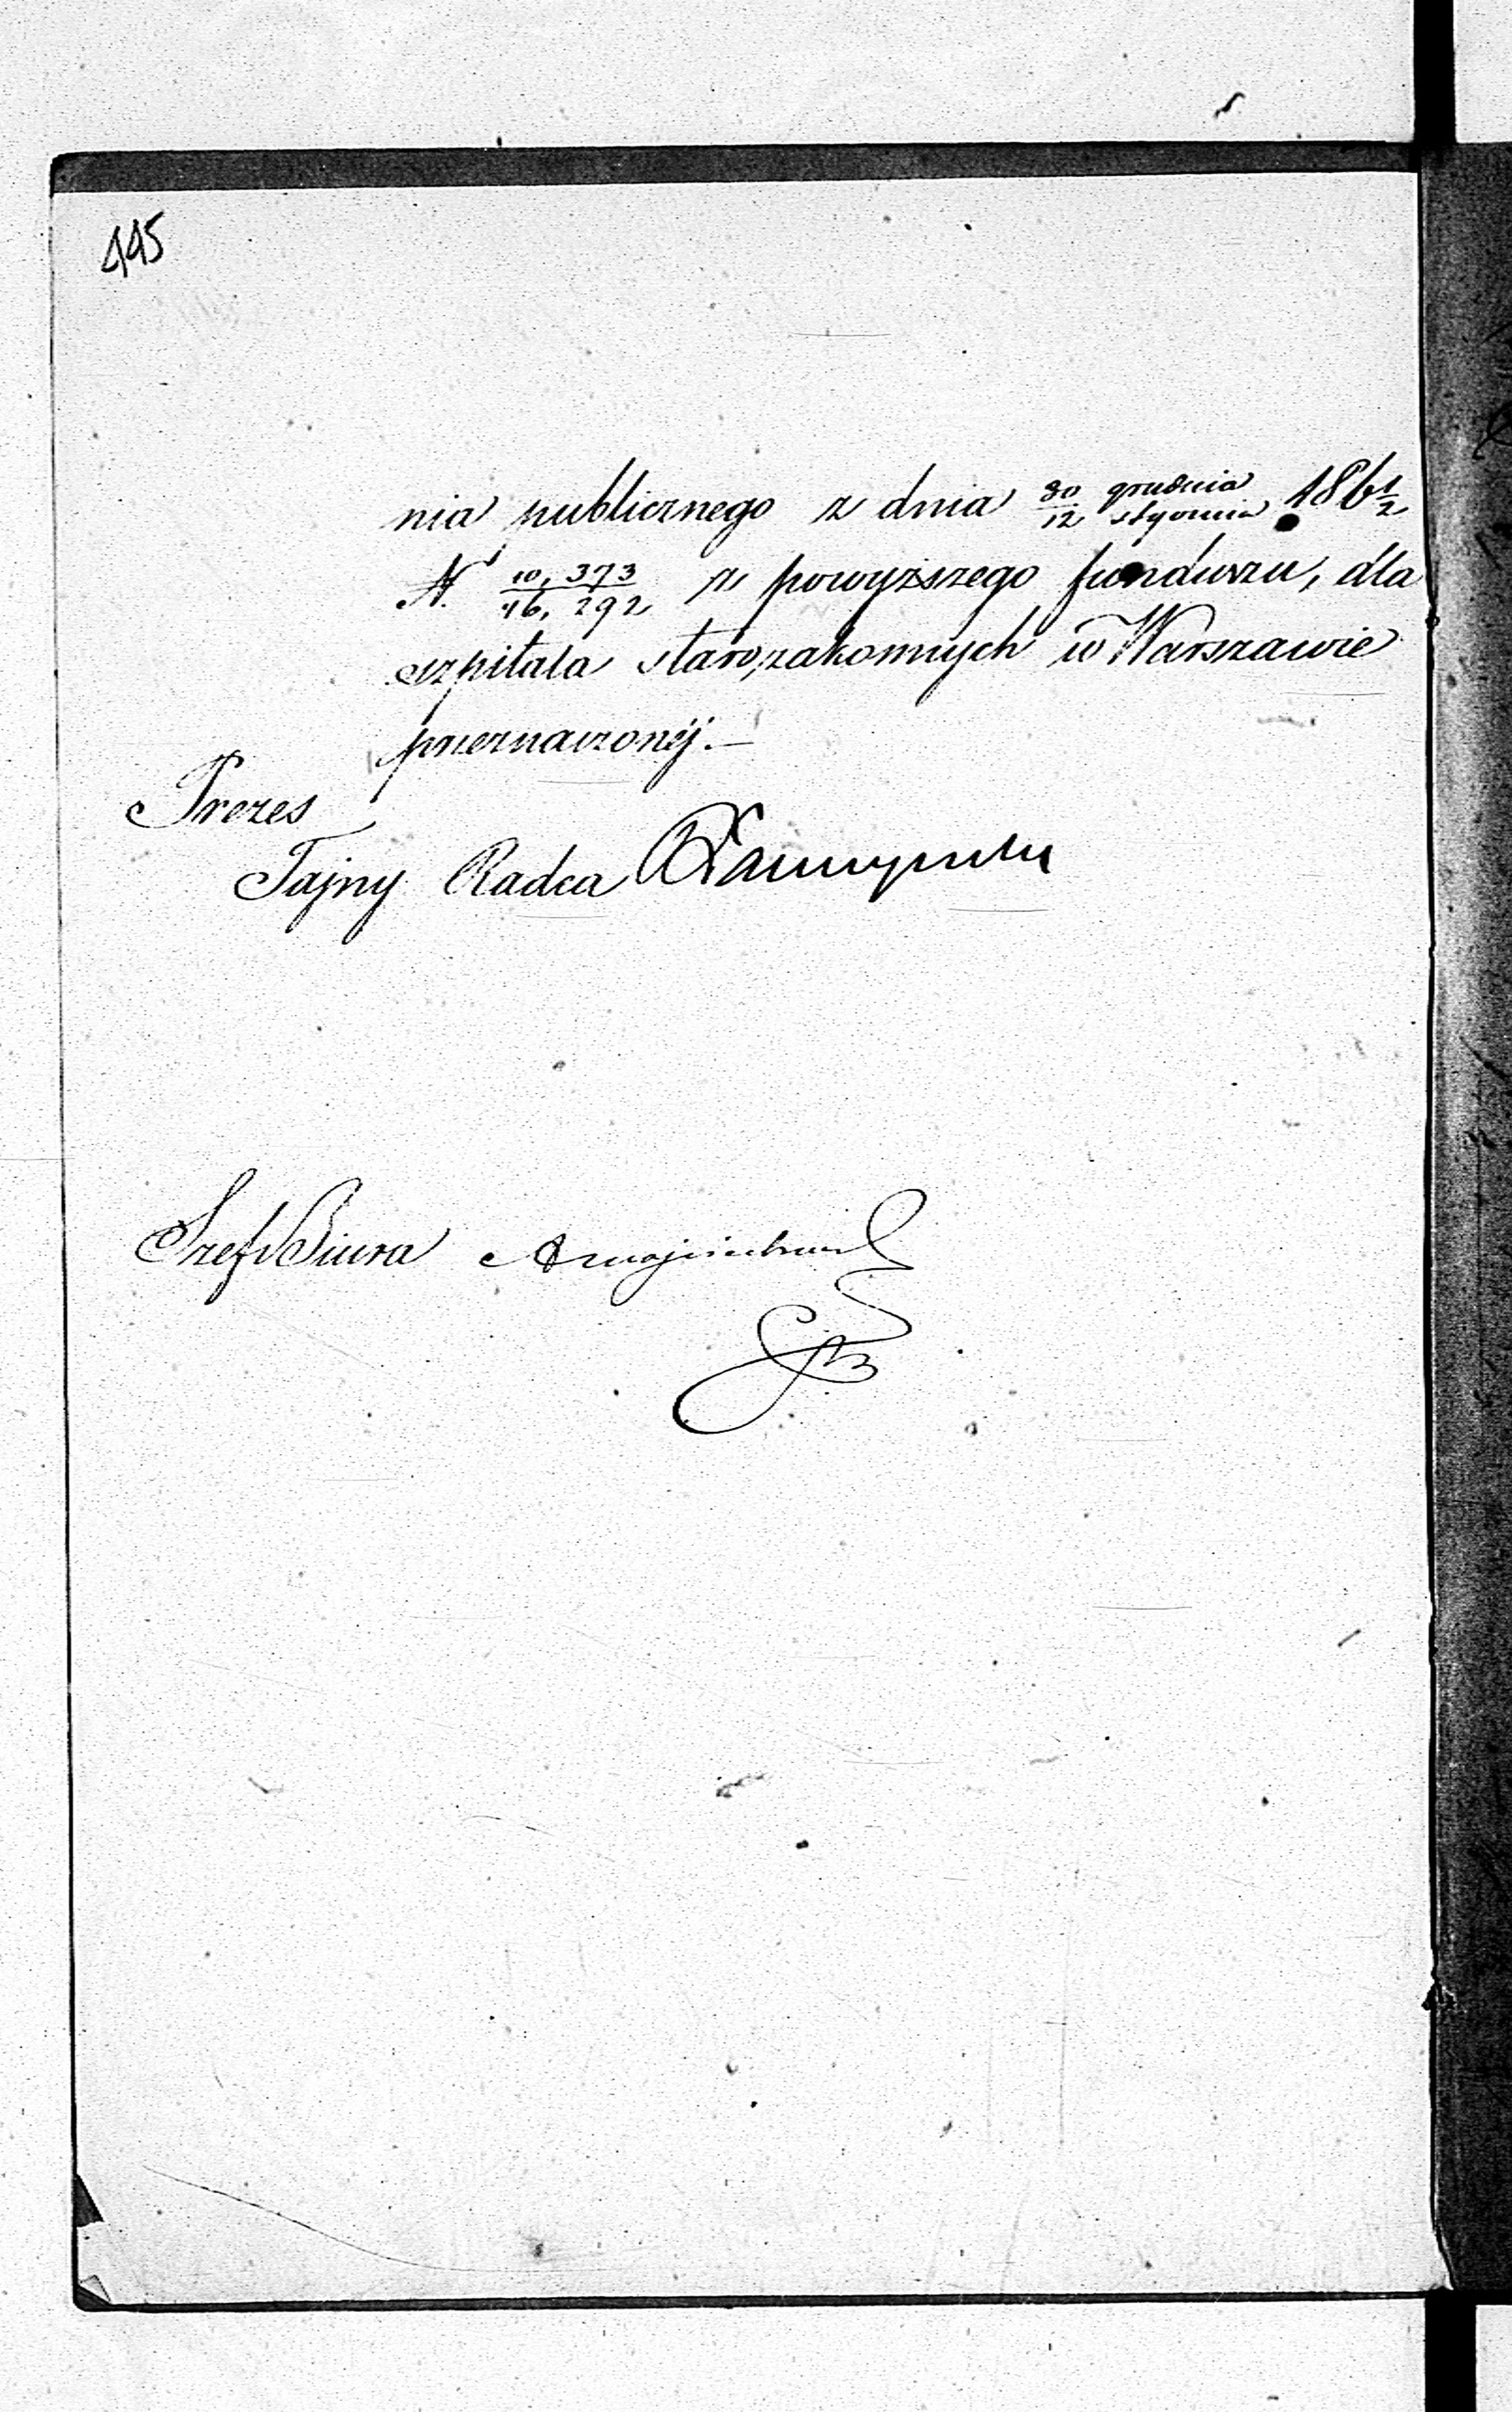 445
nia publicznego z dnia 30/12 grudnia/stycznia 1861/2
N. 10,373/16,292 z powyższego funduszu, dla
szpitala starozakonnych w Warszawie
przeznaczonéj.—
Prezes
Tajny Radca
Szef Biura